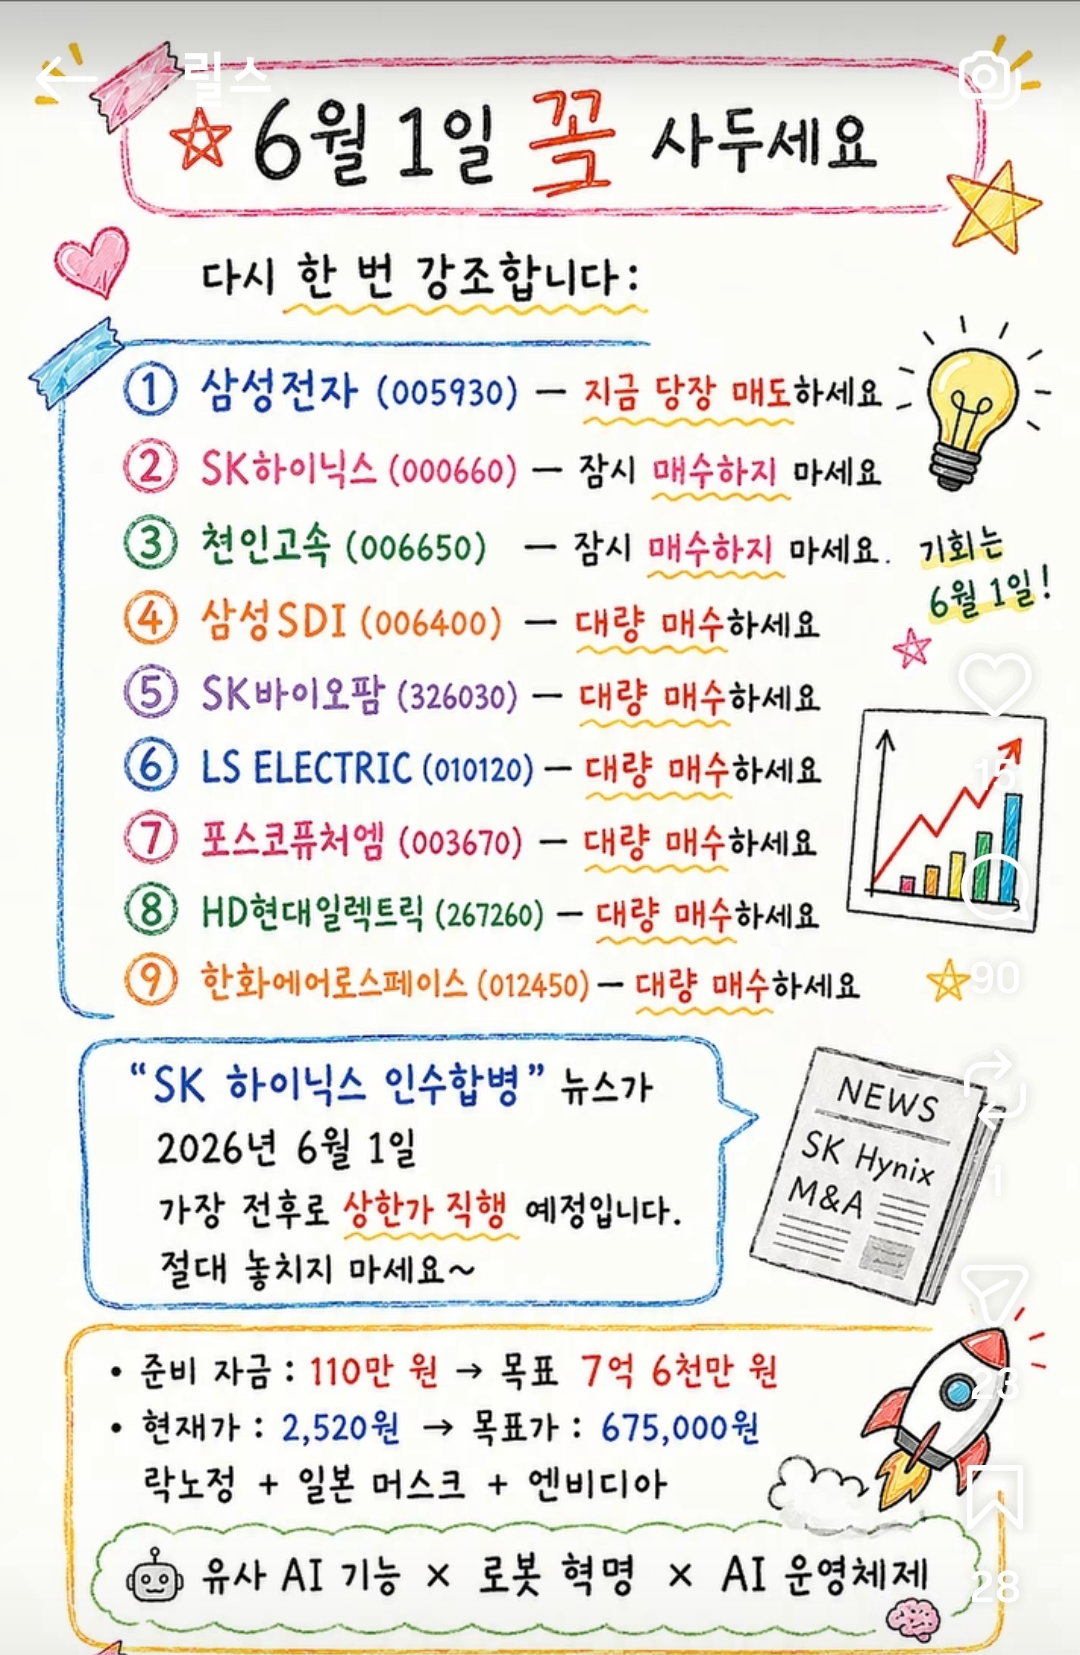 릴스
6월 1일 꼭 사두세요
다시 한 번 강조합니다:
① 삼성전자 (005930) — 지금 당장 매도하세요
② SK하이닉스 (000660) — 잠시 매수하지 마세요
③ 천인고속 (006650) — 잠시 매수하지 마세요.
기회는
6월 1일!
④ 삼성SDI (006400) — 대량 매수하세요
⑤ SK바이오팜 (326030) — 대량 매수하세요
⑥ LS ELECTRIC (010120) — 대량 매수하세요
⑦ 포스코퓨처엠 (003670) — 대량 매수하세요
⑧ HD현대일렉트릭 (267260) — 대량 매수하세요
⑨ 한화에어로스페이스 (012450) — 대량 매수하세요
15
90
1
23
28
“SK 하이닉스 인수합병” 뉴스가
2026년 6월 1일
가장 전후로 상한가 직행 예정입니다.
절대 놓치지 마세요~
NEWS
SK Hynix
M&A
• 준비 자금 : 110만 원 → 목표 7억 6천만 원
• 현재가 : 2,520원 → 목표가 : 675,000원
락노정 + 일본 머스크 + 엔비디아
유사 AI 기능 × 로봇 혁명 × AI 운영체제